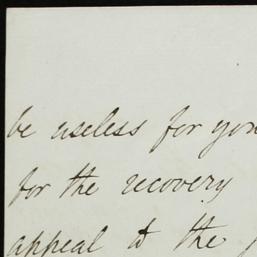 be useless for you
for the recovery
appeal to the